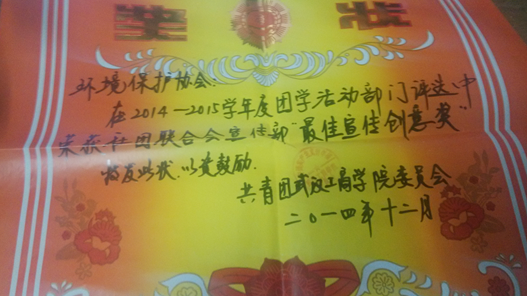 奖状
环境保护协会:
在2014—2015学年度团学活动部门评选中
荣获社团联合会宣传部"最佳宣传创意奖"
特发此状,以资鼓励.
共青团武汉工商学院委员会
二〇一四年十二月